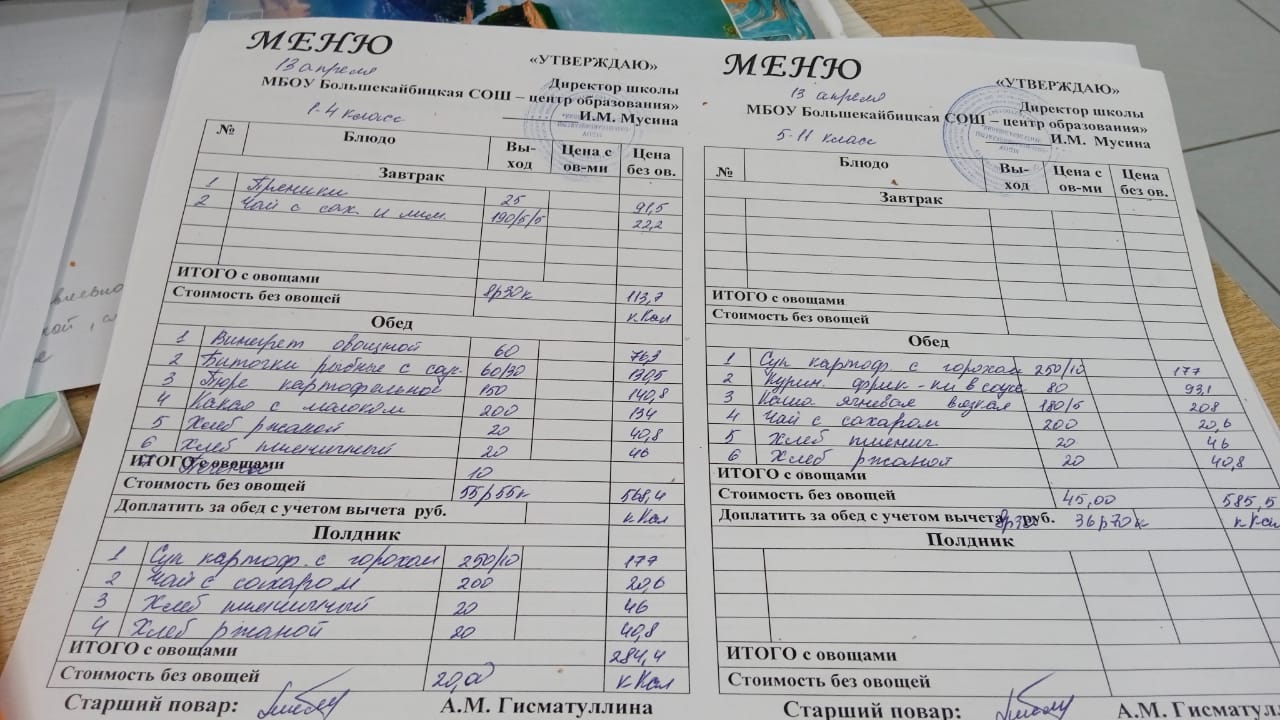 МЕНЮ
13 апреля
«УТВЕРЖДАЮ»
Директор школы
МБОУ Большекайбицкая СОШ – центр образования»
1-4 класс
И.М. Мусина
№ Блюдо Вы-ход Цена с ов-ми Цена без ов.
Завтрак
1 Пряники 25 91,5
2 Чай с сах. и лим. 190/5/5 22,2
ИТОГО с овощами
Стоимость без овощей 8р30к 113,7
кКал
Обед
1 Винегрет овощной 60 76,3
2 Биточки рыбные с соус. 60/30 130,5
3 Пюре картофельное 150 140,8
4 Какао с молоком 200 134
5 Хлеб ржаной 20 40,8
6 Хлеб пшеничный 20 46
ИТОГО с овощами 10
Стоимость без овощей 55р55к 568,4
Доплатить за обед с учетом вычета руб. кКал
Полдник
1 Суп картоф. с горохом 250/10 177
2 Чай с сахаром 200 20,6
3 Хлеб пшеничный 20 46
4 Хлеб ржаной 20 40,8
ИТОГО с овощами 284,4
Стоимость без овощей 20,00 кКал
Старший повар: А.М. Гисматуллина
МЕНЮ
13 апреля
«УТВЕРЖДАЮ»
Директор школы
МБОУ Большекайбицкая СОШ – центр образования»
5-11 класс
И.М. Мусина
№ Блюдо Вы-ход Цена с ов-ми Цена без ов.
Завтрак
ИТОГО с овощами
Стоимость без овощей
Обед
1 Суп картоф. с горохом 250/10 177
2 Курин. фрик-ки в соусе 80 93,1
3 Каша ячневая вязкая 180/5 208
4 Чай с сахаром 200 20,6
5 Хлеб пшенич. 20 46
6 Хлеб ржаной 20 40,8
ИТОГО с овощами
Стоимость без овощей 45,00 585,5
Доплатить за обед с учетом вычета руб. 36р70к кКал
Полдник
ИТОГО с овощами
Стоимость без овощей
Старший повар: А.М. Гисматулл